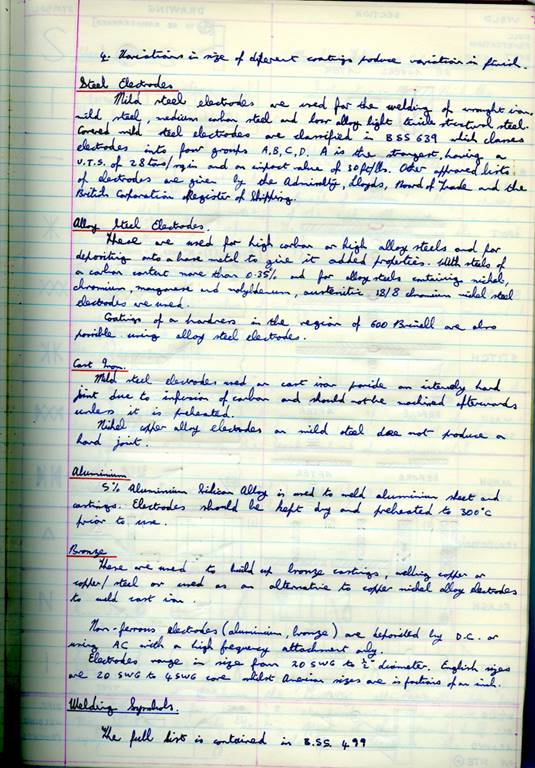 4. Variations in size of different coatings produce variation in finish.
Steel Electrodes
Mild steel electrodes are used for the welding of wrought iron,
mild steel, medium carbon steel and low alloy hight tensile structural steel.
Covered mild steel electrodes are classified in B.S.S 639 which classes
electrodes into four groups A,B,C,D. A is the strongest, having a
U.T.S. of 28 tons/sq in and an impact value of 30 ft/lbs. Other approved lists
of electrodes are given by the Admiralty, Lloyds, Board of Trade and the
British Corporation Register of Shipping.
Alloy Steel Electrodes.
These are used for high carbon or high alloy steels and for
depositing onto a base metal to give it added properties. With steels of
a carbon content more than 0.35% and for alloy steels containing nickel,
chromium, manganese and molybdenum, austenitic 18/8 chromium nickel steel
electrodes are used.
Coatings of a hardness in the region of 600 Brinell are also
possible using alloy steel electrodes.
Cast Iron.
Mild steel electrodes used on cast iron provide an intensely hard
joint due to infusion of carbon and should not be machined afterwards
unless it is preheated.
Nickel copper alloy electrodes on mild steel does not produce a
hard joint.
Aluminium
5% Aluminium Silicon Alloy is used to weld aluminium sheet and
castings. Electrodes should be kept dry and preheated to 300°C
prior to use.
Bronze
These are used to build up bronze castings, welding copper or
copper/steel or used as an alternative to copper nickel alloy electrodes
to weld cast iron.
Non-ferrous electrodes (aluminium, bronze) are deposited by D.C. or
using AC with a high frequency attachment only.
Electrodes range in size from 20 SWG to diameter. English sizes
are 20 SWG to 4 SWG core whilst American sizes are in fractions of an inch.
Welding Symbols.
The full list is contained in B.S.S. 499